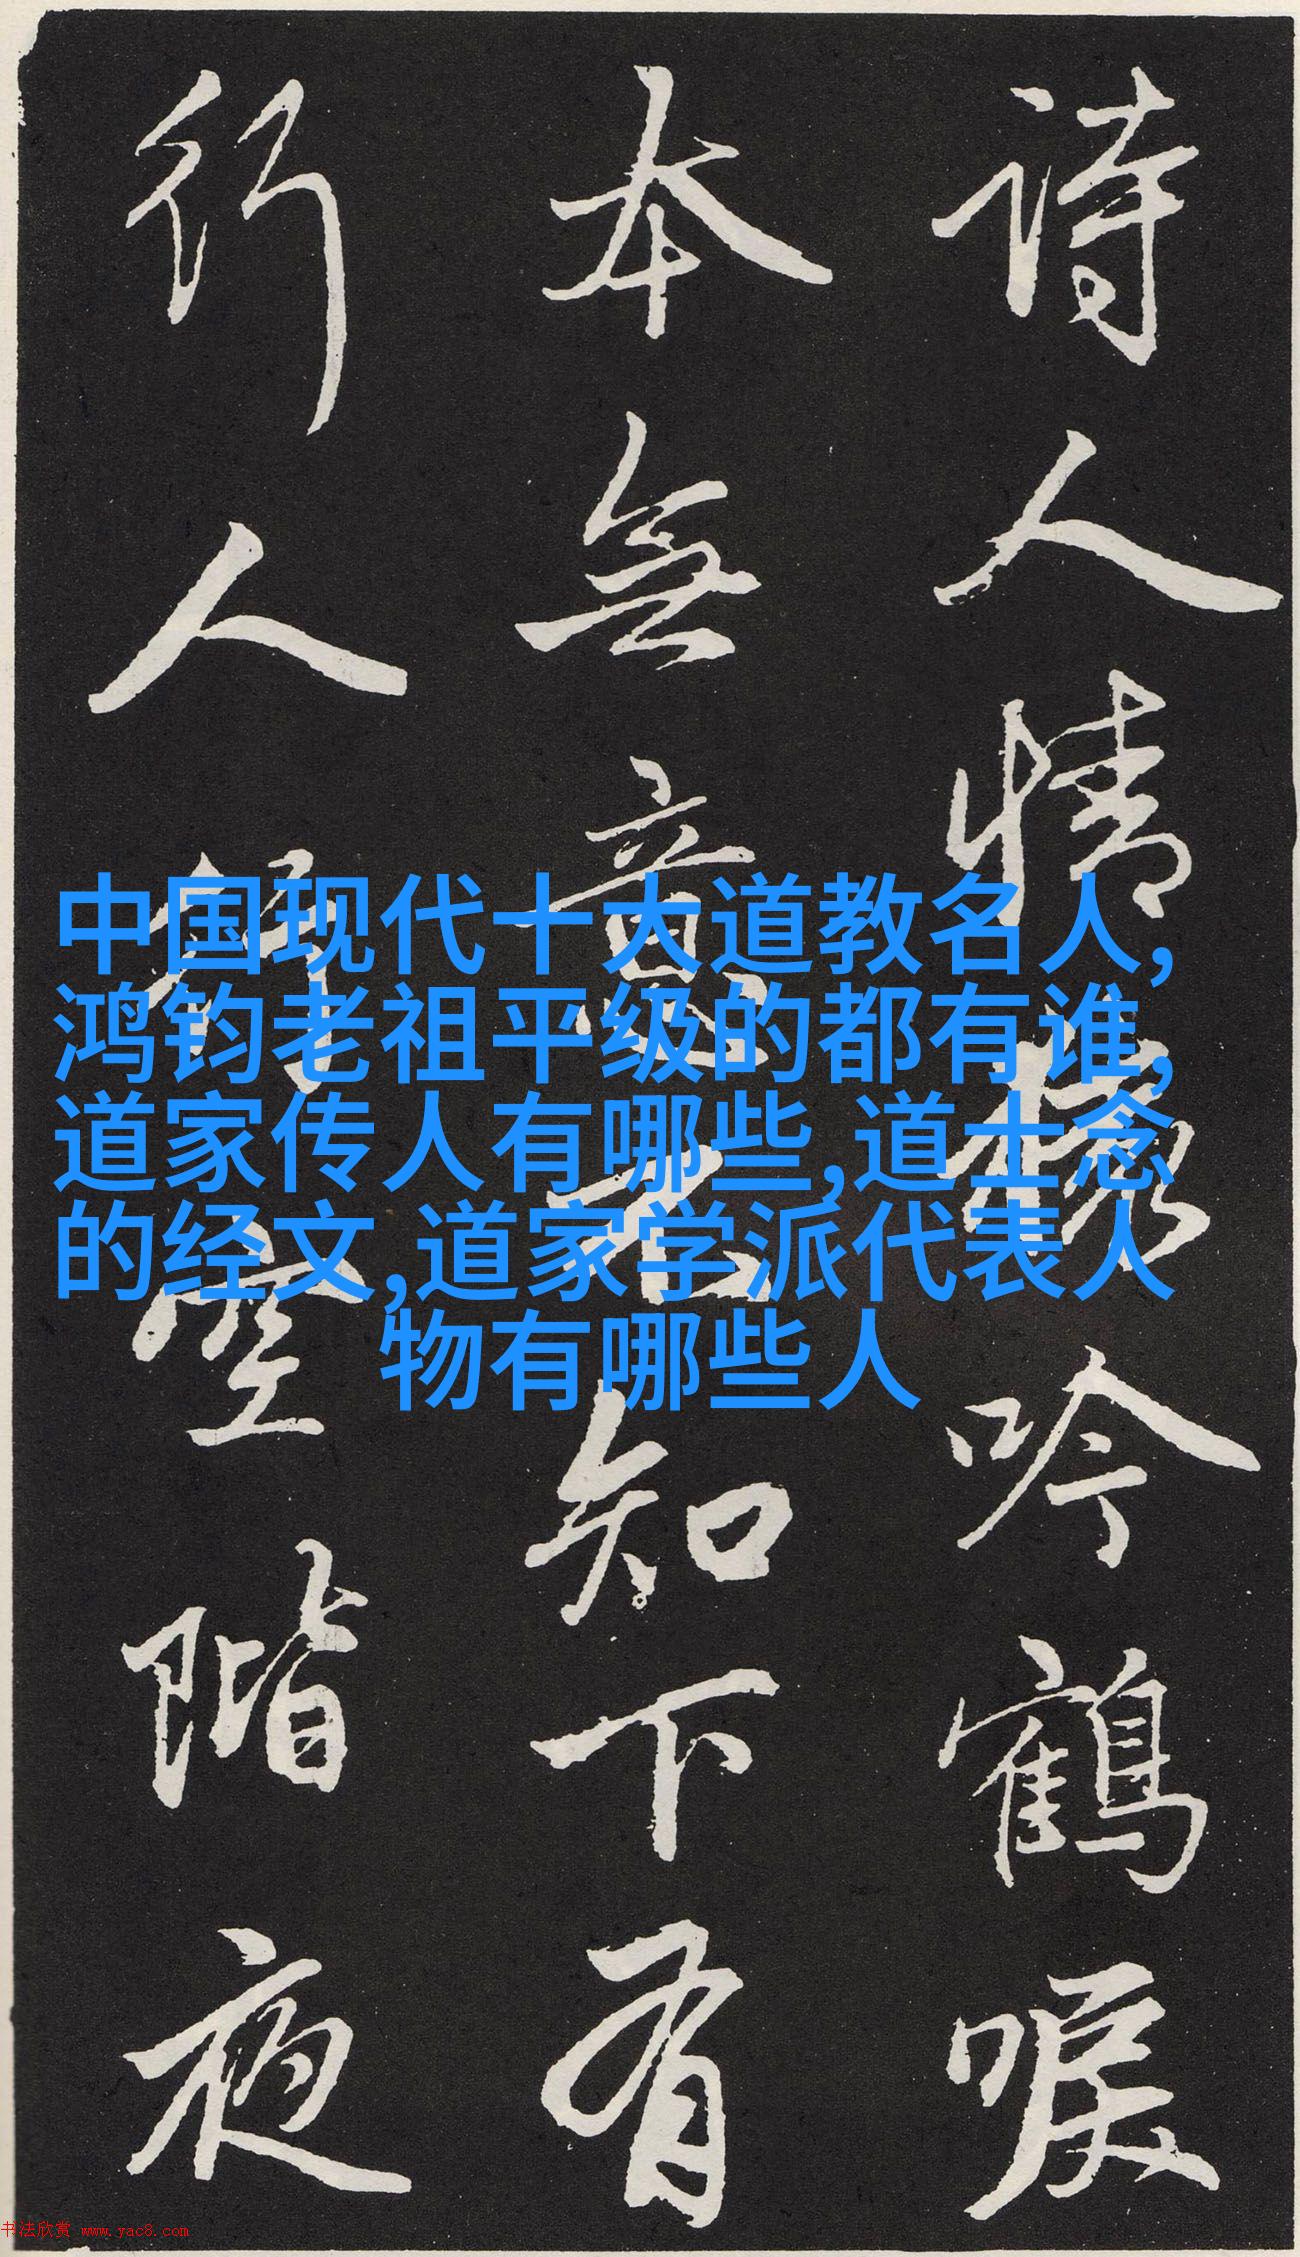 詩人情吟鶴唳
本無意知下有
行人空階夜
中国现代十大道教名人,
鸿钧老祖平级的都有谁,
道家传人有哪些,道士念
的经文,道家学派代表人
物有哪些人
书法欣赏 www.yac8.com